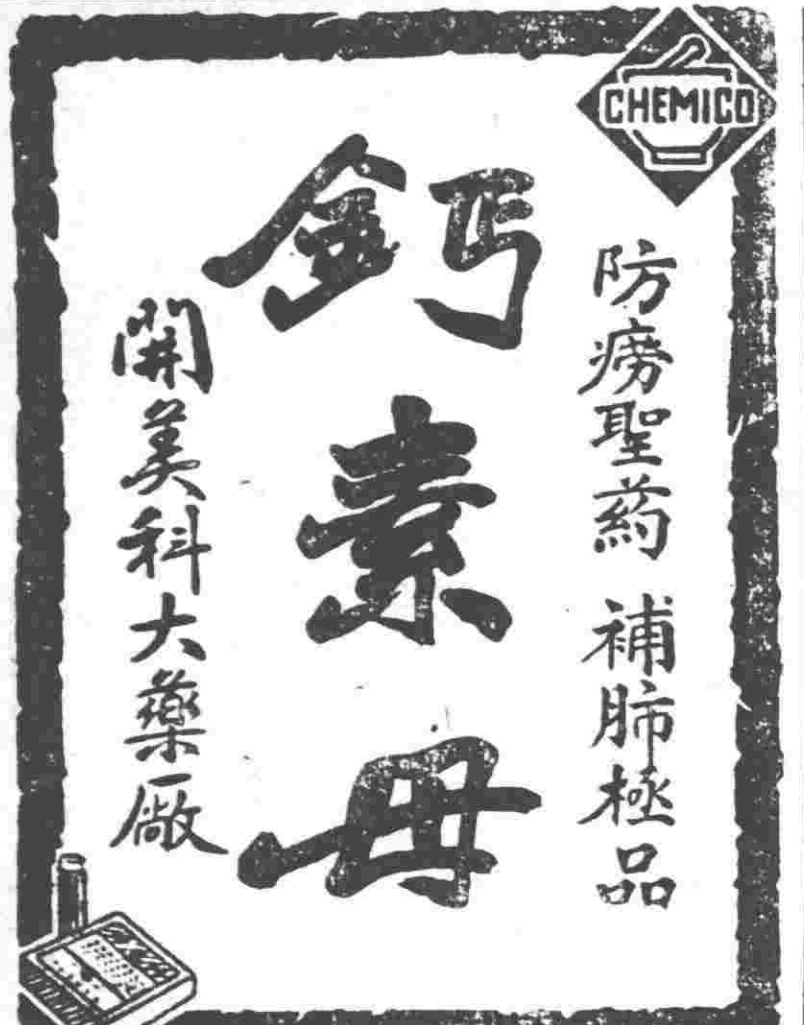 CHEMICO
防癆聖葯 補肺極品
鈣素母
開美科大藥廠